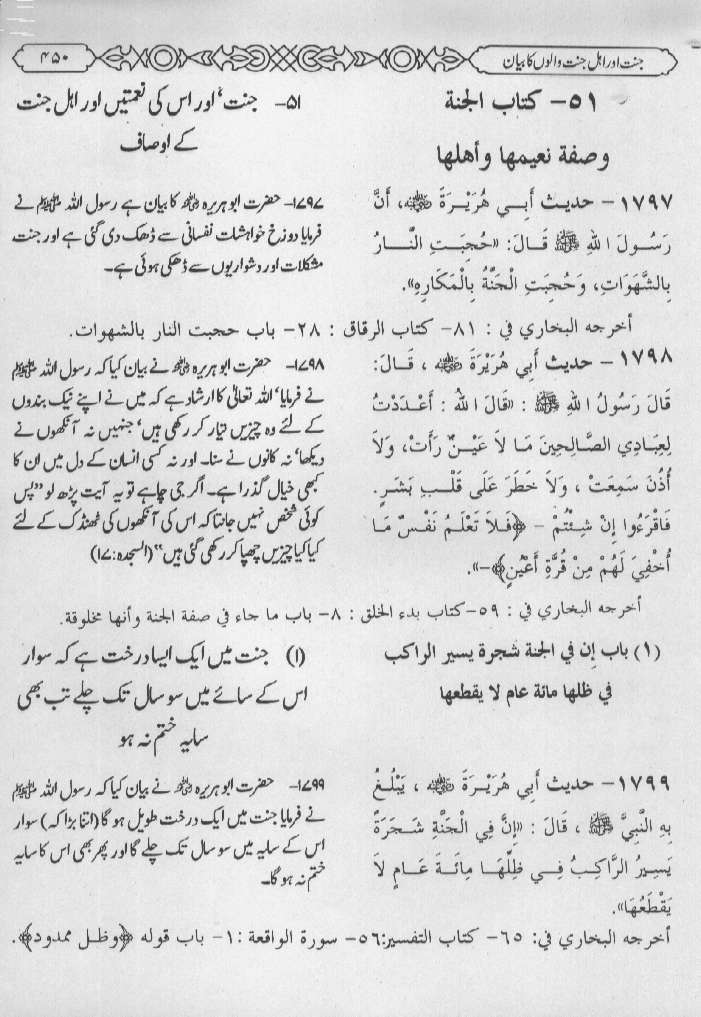 جنت اور اہل جنت والوں کا بیان
۴۵۰
٥١- كتاب الجنة
وصفة نعيمها وأهلها
۵۱- جنت، اور اس کی نعمتیں اور اہل جنت
کے اوصاف
١٧٩٧- حديث أَبِي هُرَيْرَةَ ﷺ، أَنَّ
رَسُولَ اللهِ ﷺ قَالَ: «حُجِبَتِ النَّارُ
بِالشَّهَوَاتِ، وَحُجِبَتِ الْجَنَّةُ بِالْمَكَارِهِ».
۱۷۹۷- حضرت ابو ہریرہ کا بیان ہے رسول اللہ ﷺ نے
فرمایا دوزخ خواہشات نفسانی سے ڈھک دی گئی ہے اور جنت
مشکلات اور دشواریوں سے ڈھکی ہوئی ہے۔
أخرجه البخاري في : ٨١- كتاب الرقاق : ٢٨- باب حجبت النار بالشهوات.
١٧٩٨- حديث أَبِي هُرَيْرَةَ ، قَالَ:
قَالَ رَسُولُ اللهِ ﷺ : «قَالَ اللهُ : أَعْدَدْتُ
لِعِبَادِي الصَّالِحِينَ مَا لاَ عَيْنٌ رَأَتْ، وَلاَ
أُذُنٌ سَمِعَتْ ، وَلاَ خَطَرَ عَلَى قَلْبِ بَشَرٍ.
فَاقْرَءُوا إِنْ شِئْتُمْ - ﴿فَلاَ تَعْلَمُ نَفْسٌ مَا
أُخْفِيَ لَهُمْ مِنْ قُرَّةِ أَعْيُنٍ﴾-».
۱۷۹۸- حضرت ابو ہریرہ نے بیان کیا کہ رسول اللہ ﷺ
نے فرمایا، اللہ تعالیٰ کا ارشاد ہے کہ میں نے اپنے نیک بندوں
کے لئے وہ چیزیں تیار کر رکھی ہیں، جنہیں نہ آنکھوں نے
دیکھا، نہ کانوں نے سنا۔ اور نہ کسی انسان کے دل میں ان کا
کبھی خیال گذرا ہے۔ اگر جی چاہے تو یہ آیت پڑھ لو "پس
کوئی شخص نہیں جانتا کہ اس کی آنکھوں کی ٹھنڈک کے لئے
کیا کیا چیزیں چھپا کر رکھی گئی ہیں" (السجدہ:۱۷)
أخرجه البخاري في : ٥٩- كتاب بدء الخلق : ٨- باب ما جاء في صفة الجنة وأنها مخلوقة.
(١) باب إن في الجنة شجرة يسير الراكب
في ظلها مائة عام لا يقطعها
(۱) جنت میں ایک ایسا درخت ہے کہ سوار
اس کے سائے میں سو سال تک چلے تب بھی
سایہ ختم نہ ہو
١٧٩٩- حديث أَبِي هُرَيْرَةَ ، يَبْلُغُ
بِهِ النَّبِيَّ ﷺ ، قَالَ : «إِنَّ فِي الْجَنَّةِ شَجَرَةً
يَسِيرُ الرَّاكِبُ فِي ظِلِّهَا مِائَةَ عَامٍ لاَ
يَقْطَعُهَا».
۱۷۹۹- حضرت ابو ہریرہ نے بیان کیا کہ رسول اللہ ﷺ
نے فرمایا جنت میں ایک درخت طویل ہو گا (اتنا بڑا کہ) سوار
اس کے سایہ میں سو سال تک چلے گا اور پھر بھی اس کا سایہ
ختم نہ ہو گا۔
أخرجه البخاري في: ٦٥- كتاب التفسير:٥٦- سورة الواقعة :١- باب قوله ﴿وظل ممدود﴾.